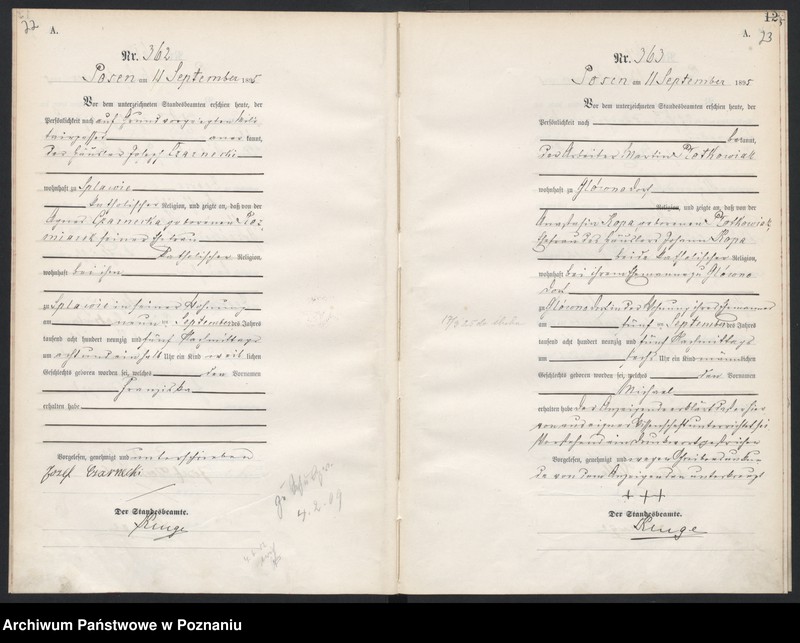 22
A.
Nr. 362
Posen am 11 September 1895
Vor dem unterzeichneten Standesbeamten erschien heute, der
Persönlichkeit nach auf Grund vorgezeigten Mili-
tairpasses aner kannt,
der Häusler Joseph Czarnecki
wohnhaft zu Splawie
katholischer Religion, und zeigte an, daß von der
Agnes Czarnecka geborenen
seiner Ehefrau
katholischer Religion,
wohnhaft bei ihm
zu Splawie in seiner Wohnung
am neun ten September des Jahres
tausend acht hundert neunzig und fünf Nachmittags
um acht und einhalb Uhr ein Kind weib lichen
Geschlechts geboren worden sei, welches den Vornamen
Franziska
erhalten habe
Vorgelesen, genehmigt und unterschrieben
Józef Czarnecki
Der Standesbeamte.
Runge
4.2.09
123
A.
23
Nr. 363
Posen am 11 September 1895
Vor dem unterzeichneten Standesbeamten erschien heute, der
Persönlichkeit nach
be kannt,
der Arbeiter Martin Ratkowiak
wohnhaft zu Glówno Dorf
Religion, und zeigte an, daß von der
Anastasia Kopa geborenen Ratkowiak
Ehefrau des Häuslers Johann Kopa
beide katholischer Religion,
wohnhaft bei ihrem Ehemanne zu Glówno
Dorf
zu Glówno Dorf in der Wohnung ihres Ehemannes
am fünf ten September des Jahres
tausend acht hundert neunzig und fünf Nachmittags
um sechs Uhr ein Kind männlichen
Geschlechts geboren worden sei, welches den Vornamen
Michael
erhalten habe Der Anzeigende erklärt daß er hier
von aus eigner Wissenschaft unterrichtet sei
Vorstehend ein Druckwort gestrichen
Vorgelesen, genehmigt und wegen Schreibensunkun-
de von dem Anzeigenden unterkreuzt
+ + +
Der Standesbeamte.
Runge
Archiwum Państwowe w Poznaniu